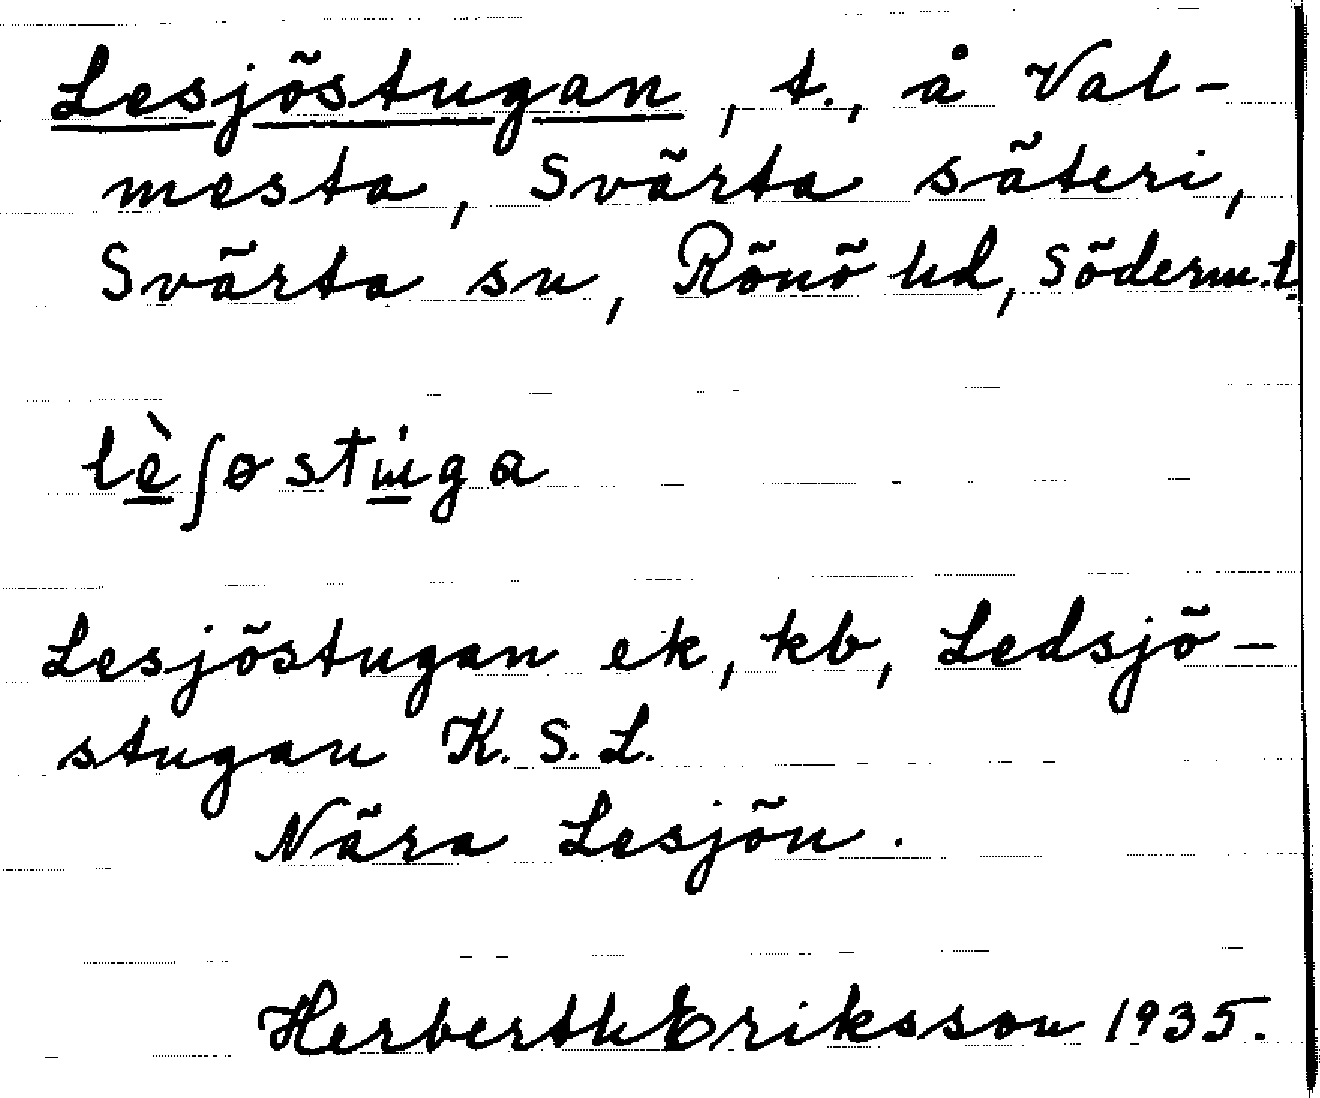 Lesjöstugan, t., å Val-
mesta, Svärta säteri,
Svärta sn, Rönö hd, Söderm.l.
lèʃøstɯ̇ga
Lesjöstugan ek, kb, Ledsjö-
stugan K.S.L.
Nära Lesjön.
Herberth Eriksson 1935.